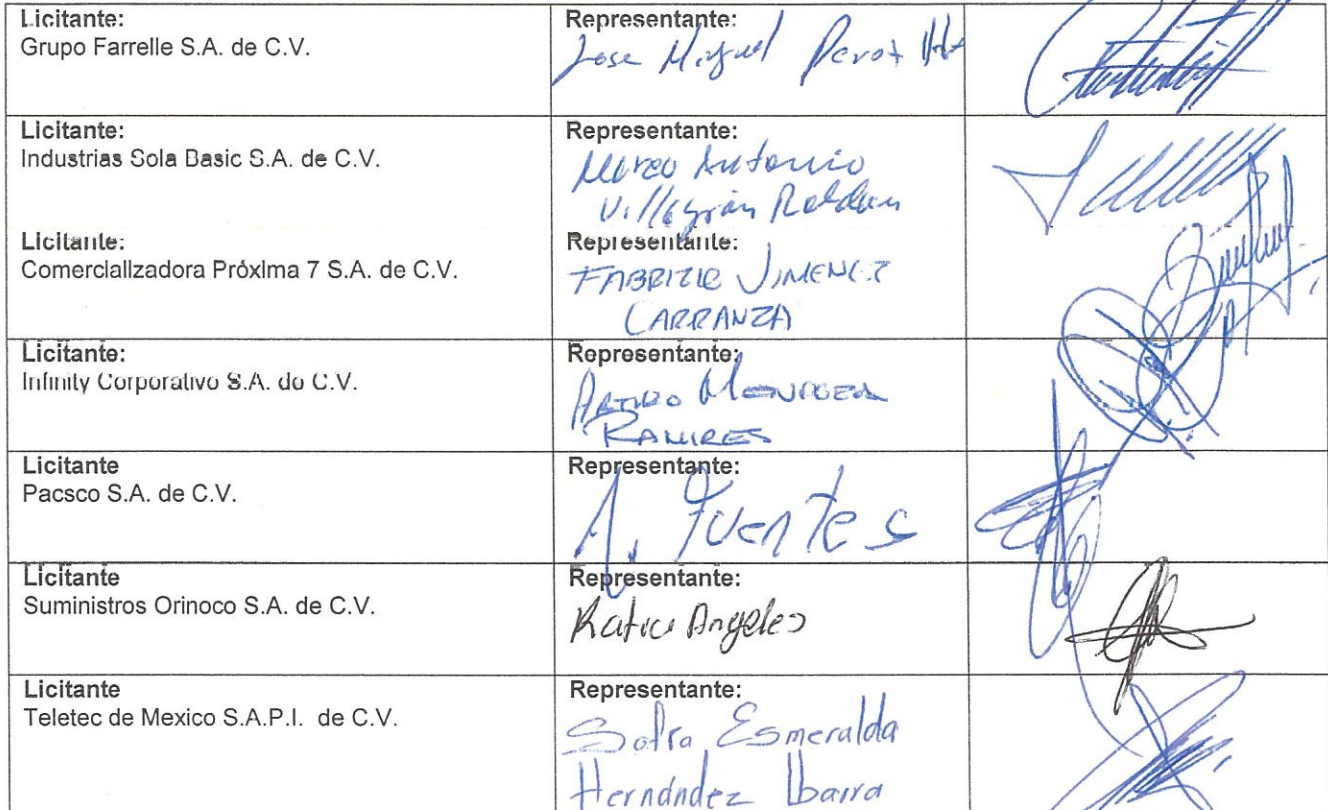 Licitante:
Grupo Farrelle S.A. de C.V.
Representante:
Jose Miguel Perot
Licitante:
Industrias Sola Basic S.A. de C.V.
Representante:
Marco Antonio
Villagrán Roldan
Licitante:
Comercializadora Próxima 7 S.A. de C.V.
Representante:
FABRIZIO JIMENEZ
CARRANZA
Licitante:
Infinity Corporativo S.A. de C.V.
Representante:
ARTURO MENDOZA
RAMIRES
Licitante
Pacsco S.A. de C.V.
Representante:
A. Fuentes
Licitante
Suministros Orinoco S.A. de C.V.
Representante:
Katia Angeles
Licitante
Teletec de Mexico S.A.P.I. de C.V.
Representante:
Sofia Esmeralda
Hernández Ibarra